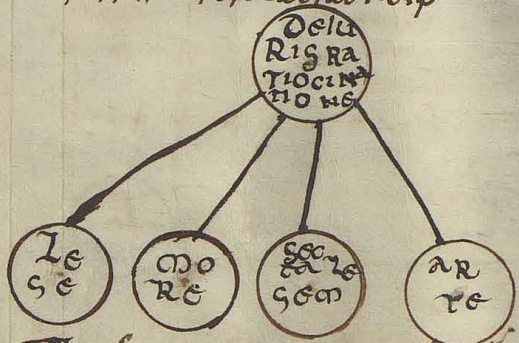 DeIu
RIS RA
TIOCINA
TIONE
Le
ge
mo
Re
sec
ta le
gem
aR
te